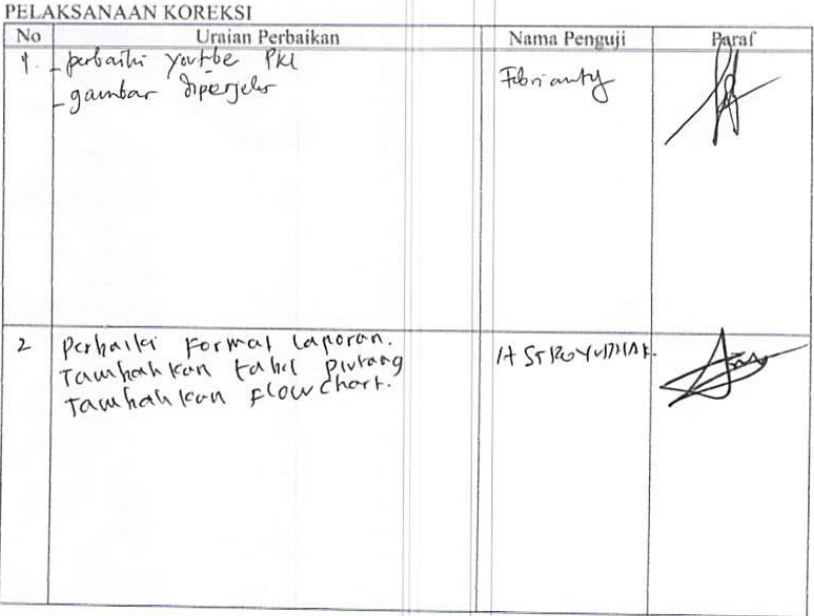 PELAKSANAAN KOREKSI
No Uraian Perbaikan Nama Penguji Paraf
1. - perbaiki youtube PKL Febrianty
- gambar diperjelas
2 Perbaiki Format Laporan.
Tambahkan tabel piutang
Tambahkan Flowchart.